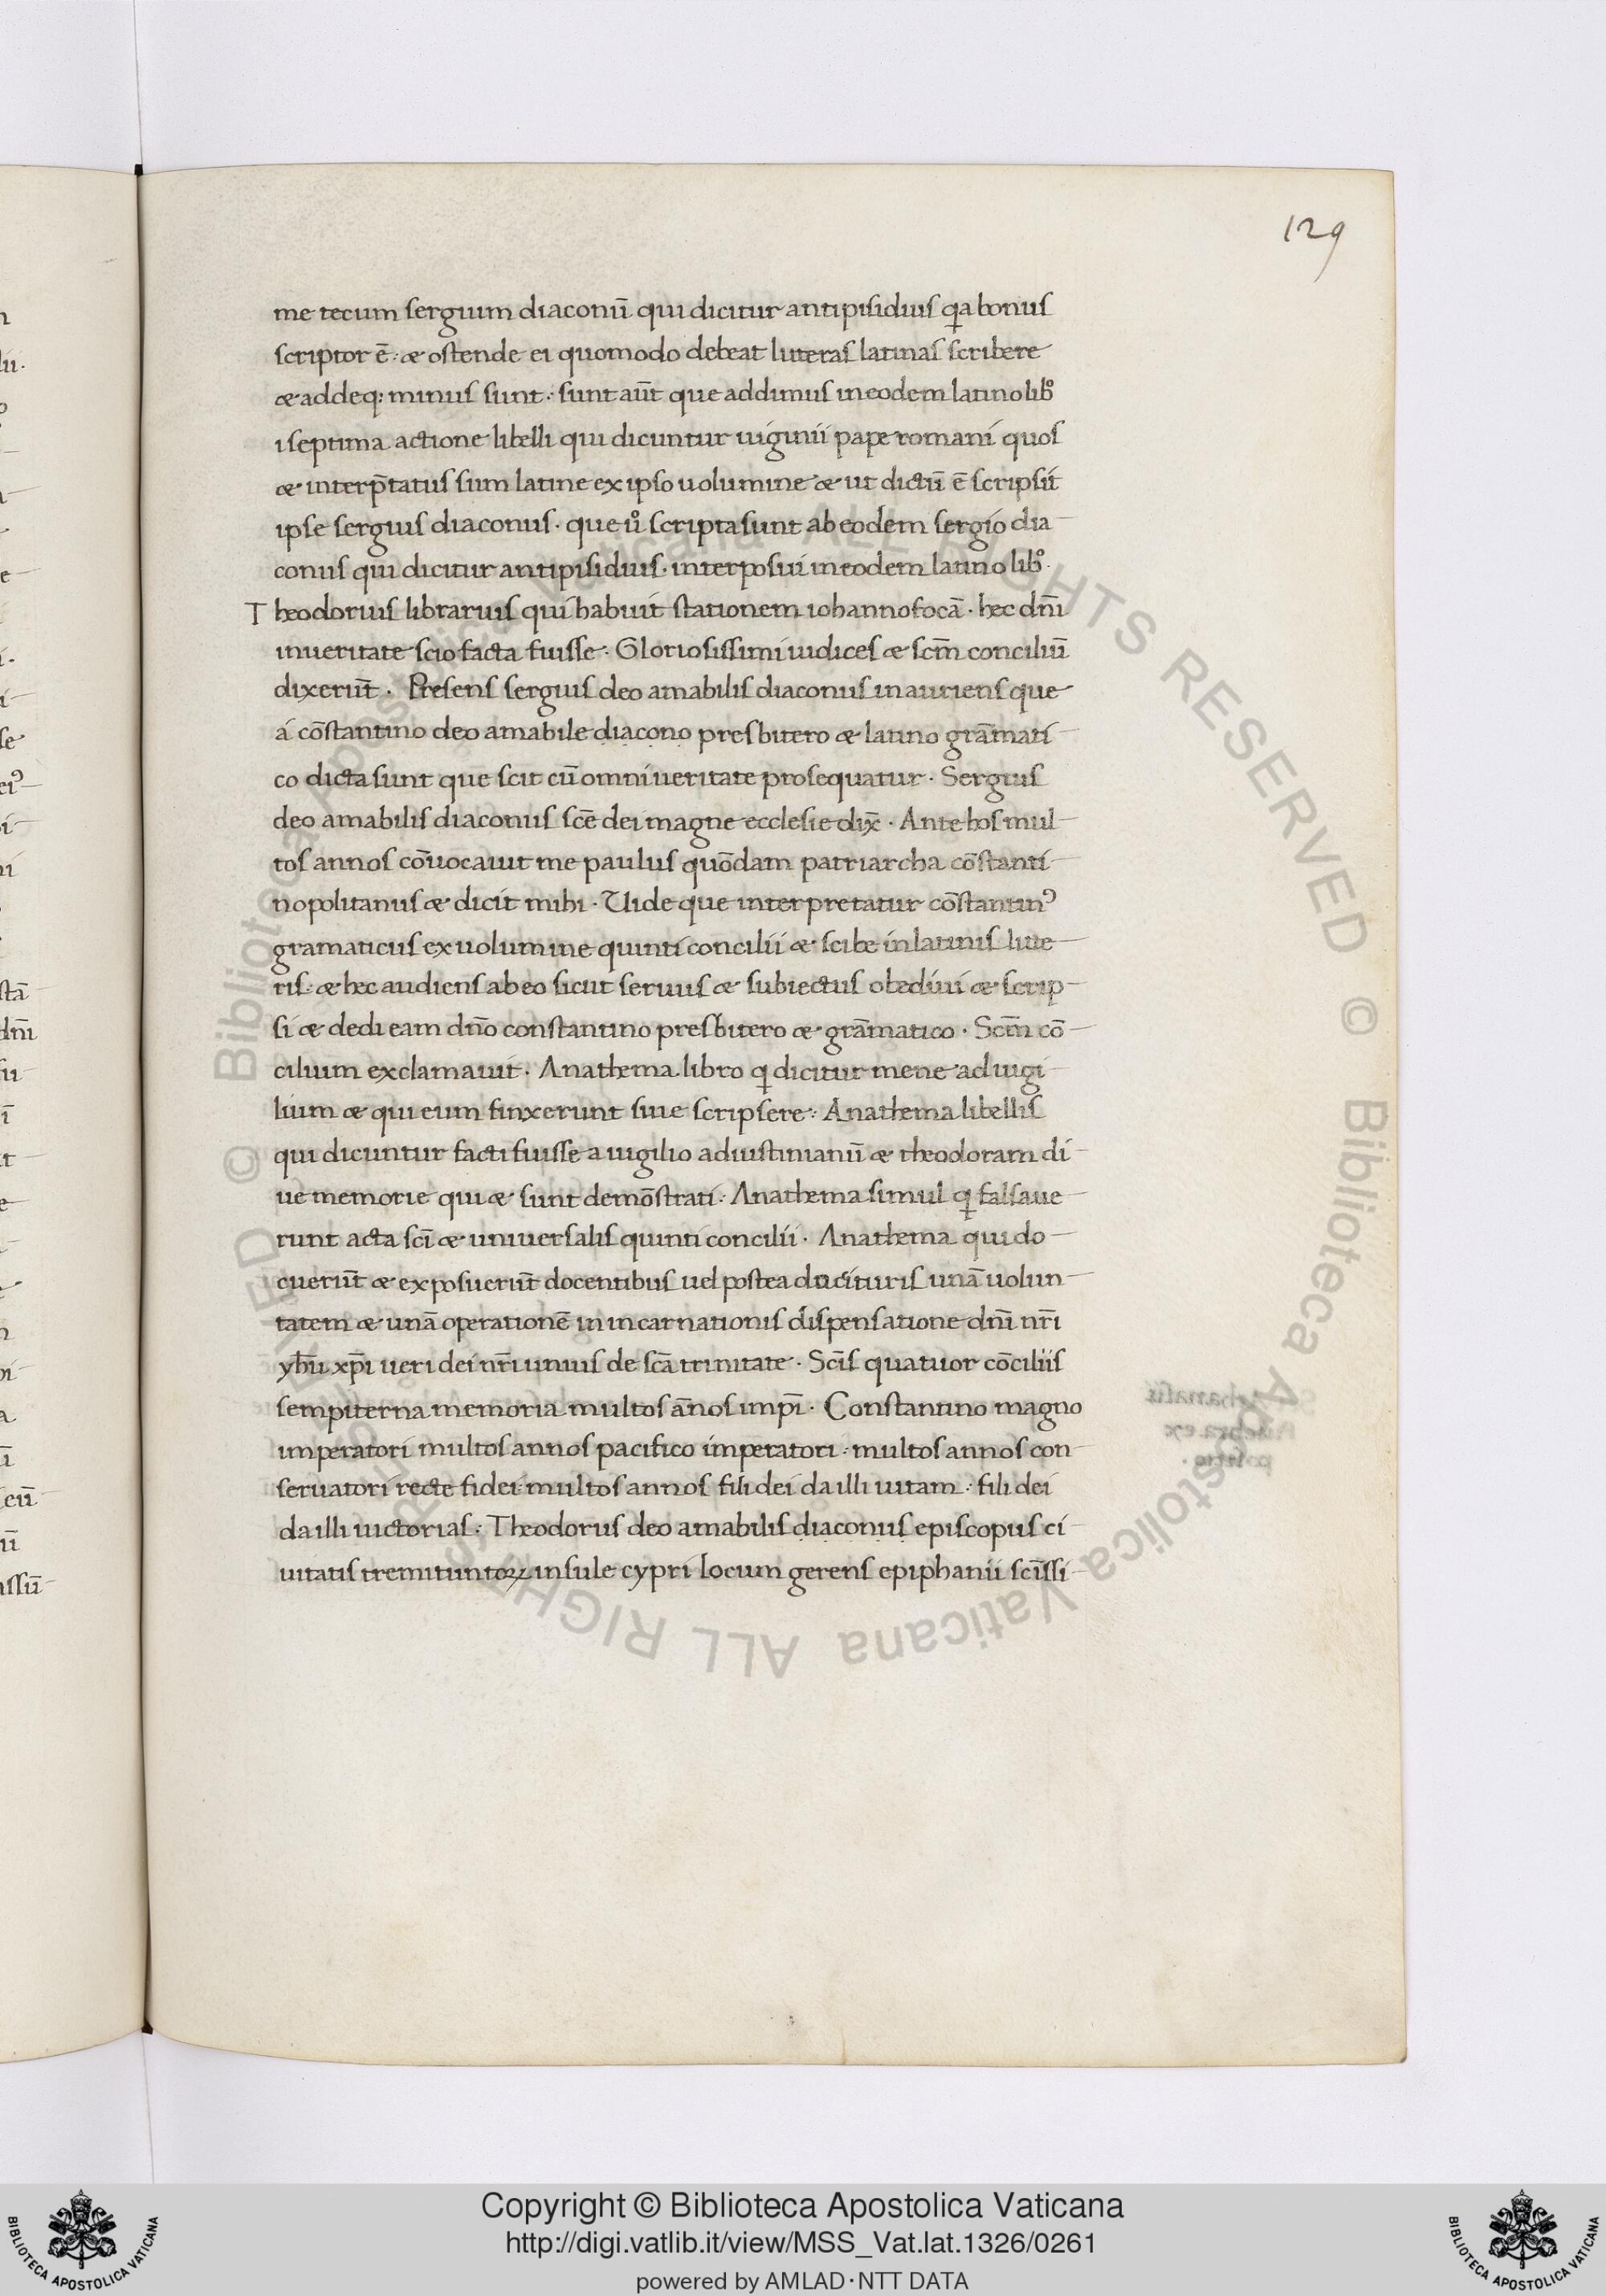 129
me tecum sergium diaconū qui dicitur antipisidius qa bonus
scriptor ē: æ ostende ei quomodo debeat litteras latinas scribere
æ adde q: minus sunt: sunt aūt que addimus in eodem latino libº
i septima actione libelli qui dicuntur uiginii pape romani quos
æ interp̄tatus sum latine ex ipso uolumine æ ut dictū ē scripsit
ipse sergius diaconus· que uº scripta sunt ab eodem sergio dia
conus qui dicitur antipisidius· interposui in eodem latino libº·
Theodorus librarius qui habuit stationem iohannofocā· hec dn̄i
in ueritate scio facta fuisse: Gloriosissimi iudices æ scm̄ conciliū
dixerūt· Presens sergius deo amabilis diaconus in auriens que
á cōstantino deo amabile diacono presbitero æ latino grām̄ati
co dicta sunt que scit cū omni ueritate prosequatur· Sergius
deo amabilis diaconus scē dei magne ecclesie dix̄· Ante hos mul
tos annos cōuocauit me paulus quōdam patriarcha cōstanti
nopolitanus æ dicit mihi· Uide que interpretatur cōstantinꝰ
gramaticus ex uolumine quinti concilii æ scibe in latinis litte
ris: æ hec audiens ab eo sicut seruus æ subiectus obediui æ scrip
si æ dedi eam dn̄o constantino presbitero æ grāmatico· Scm̄ cō
cilium exclamauit· Anathema libro q dicitur mene ad uigi
lium æ qui eum finxerunt siue scripsere: Anathema libellis
qui dicuntur facti fuisse a uigilio ad iustinianū æ theodoram di
ue memorie qui æ sunt demōstrati: Anathema simul q falsaue
runt acta scī æ uniuersalis quinti concilii· Anathema qui do
cuerūt æ exposuerūt docentibus uel postea ducituris unā uolun
tatem æ unā operationē in incarnationis dispensatione dn̄i nr̄i
yhū xp̄i ueri dei nr̄i unius de scā trinitate· Scīs quatuor cōciliis
sempiterna memoria multos an̄os imp̄i· Constantino magno
imperatori multos annos pacifico imperatori: multos annos con
seruatori recte fidei: multos annos fili dei da illi uitam: fili dei
da illi uictorias: Theodorus deo amabilis diaconus episcopus ci
uitatis tremituntoꝝ insule cypri locum gerens epiphanii scīssi
Copyright © Biblioteca Apostolica Vaticana
http://digi.vatlib.it/view/MSS_Vat.lat.1326/0261
powered by AMLAD·NTT DATA
BIBLIOTECA APOSTOLICA VATICANA
BIBLIOTECA APOSTOLICA VATICANA